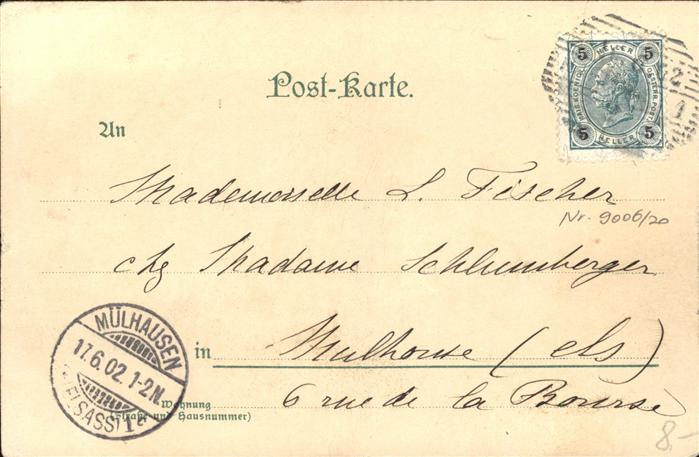 Post-Karte.
5 HELLER 5
5 HELLER 5
An
Mademoiselle L. Fischer
Nr. 9006/20
chz Madame Schlumberger
in Mulhouse (els)
Wohnung
(Straße und Hausnummer)
6 rue de la Bourse
MÜLHAUSEN
17.6.02.1-2N.
(ELSASS) 1
8.-